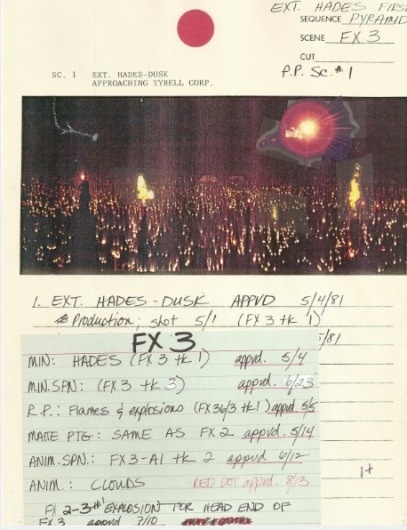 EXT. HADES FIRST
SEQUENCE PYRAMID
SCENE FX 3
CUT
P.P. Sc. #1
SC. 1 EXT. HADES-DUSK
APPROACHING TYRELL CORP.
1. EXT. HADES-DUSK APPVD 5/4/81
Production: shot 5/1 (FX 3 tk 1)
/81
FX 3
MIN: HADES (FX 3 tk 1) appvd. 5/4
MIN. SPN: (FX 3 tk 3) appvd. 6/23
R.P.: Flames & explosions (FX36/3 tk 1) appvd 5/5
MATTE PTG: SAME AS FX 2 appvd. 5/14
ANIM. SPN.: FX3-A1 tk 2 appvd. 6/12
1+
ANIM.: CLOUDS RED DOT appvd. 8/3
2-3 EXPLOSION FOR HEAD END OF
FX 3 appvd 7/10